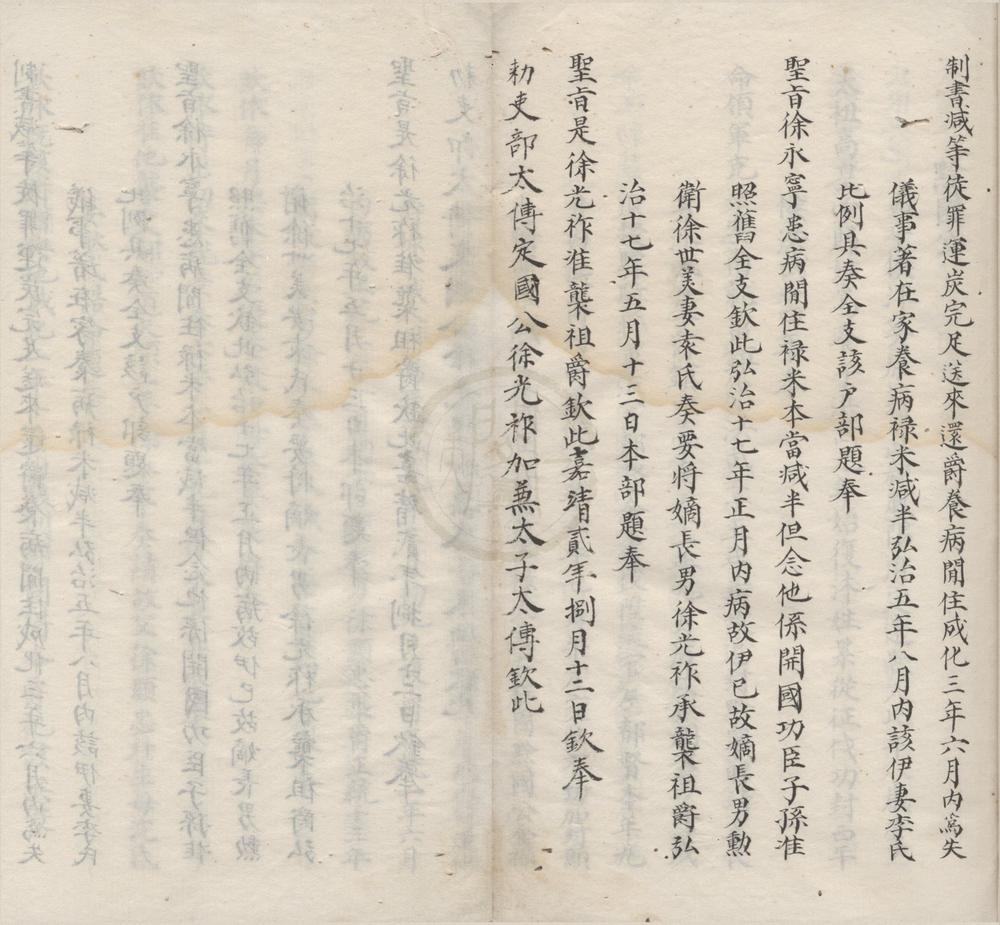 制書減等徒罪運炭完足送來還爵養病閒住成化三年六月內爲失
儀事著在家養病祿米減半弘治五年八月內該伊妻李氏
比例具奏全支該户部題奉
聖旨徐永寧患病閒住祿米本當減半但念他係開國功臣子孫准
照舊全支欽此弘治十七年正月內病故伊已故嫡長男勲
衛徐世美妻袁氏奏要將嫡長男徐光祚承襲祖爵弘
治十七年五月十三日本部題奉
聖旨是徐光祚准襲祖爵欽此嘉靖貳年捌月十二日欽奉
勅吏部太傅定國公徐光祚加兼太子太傅欽此